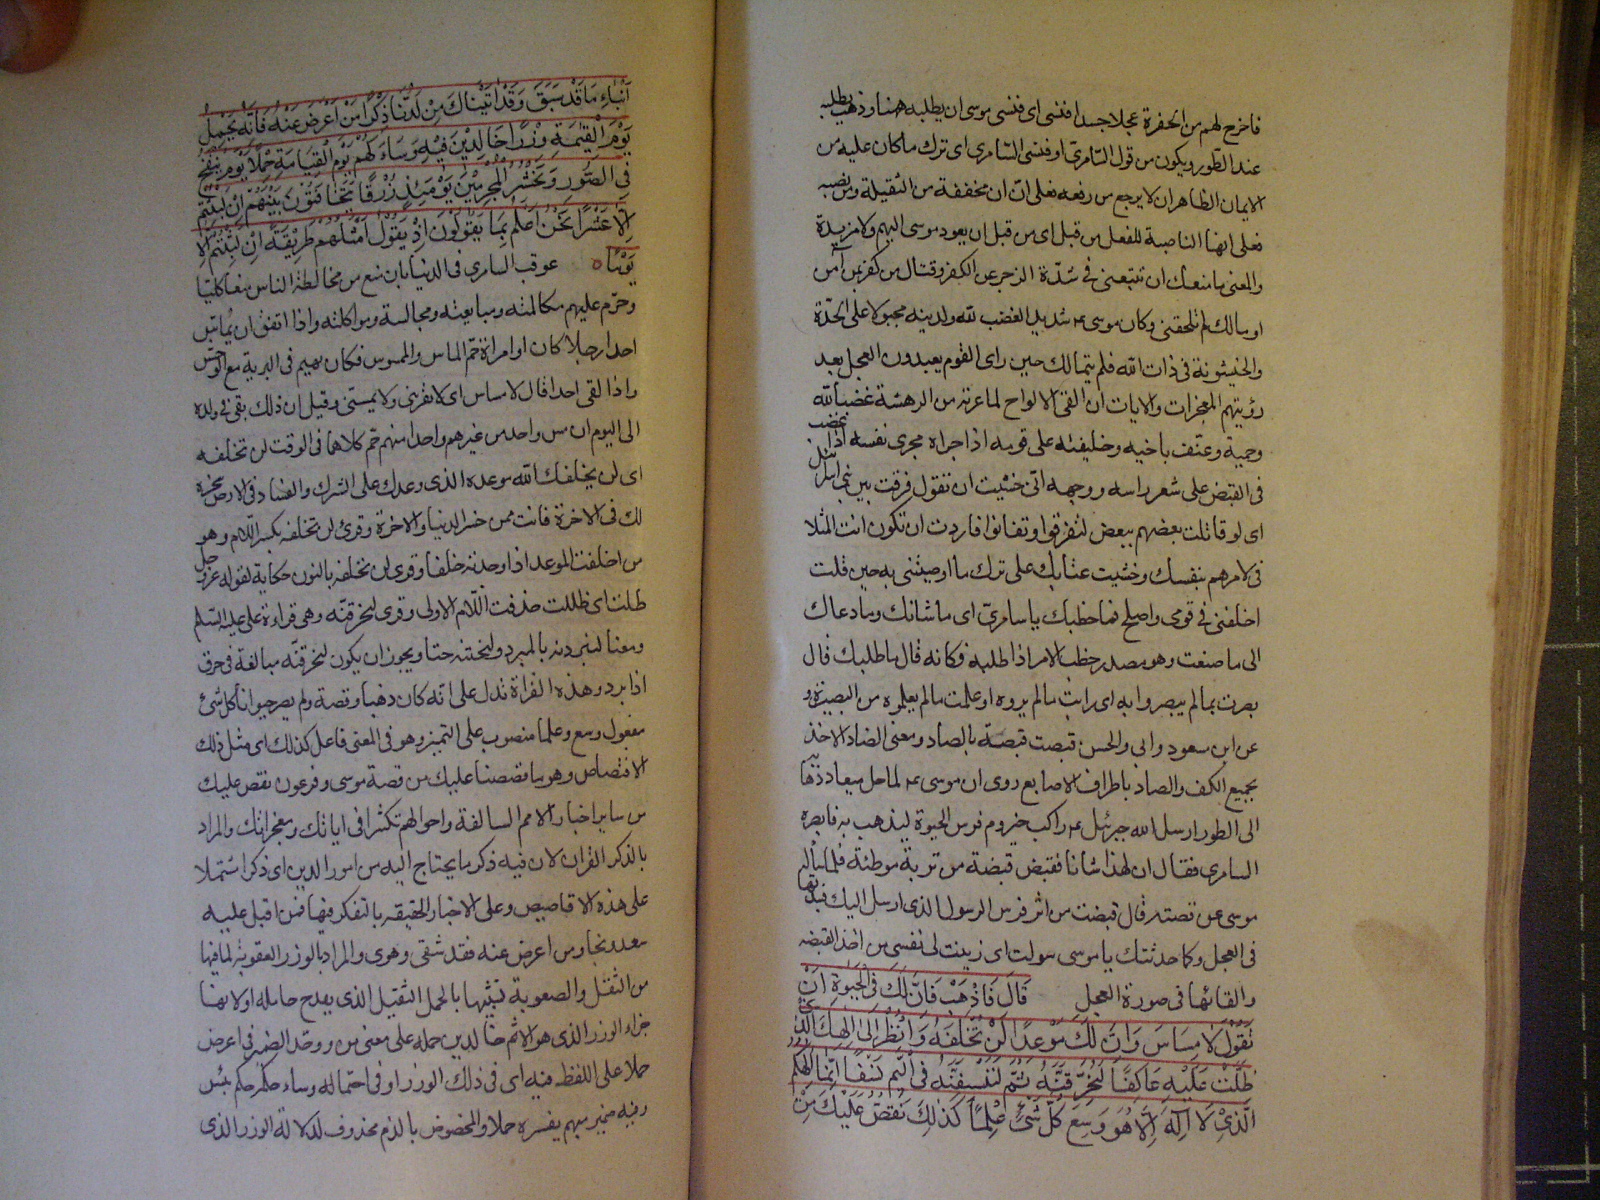 فاخرج لهم من الحفرة عجلا جسدا فنسى اى فنسى موسى ان يطلبه ههنا وذهب يطلبه
عند الطور ويكون من قول السّامرىّ او فنسى السّامرى اى ترك ما كان عليه من
الايمان الظاهر ان لا يرجع من رفعه فعلى انّ ان مخففة من الثقيلة ومن نصبه
فعلى انها الناصبة للفعل من قبل اى من قبل ان يعود موسى اليهم ولا مزيدة
والمعنى ما منعك ان تتبعنى فى شدّة الزجر عن الكفر وقتال من كفر بمن آمن
او مالك لم تلحقنى وكان موسى عم شديد الغضب لله ولدينه مجبولا على الحدّة
والخشونة فى ذات الله فلم يتمالك حين راى القوم يعبدون العجل بعد
رؤيتهم المعجزات والايات ان القى الالواح لما عرته من الدهشة غضبا لله
وحمية وعنّف باخيه وخليفته على قومه اذ اجراه مجرى نفسه اذا غضب
فى القبض على شعر راسه ووجهه انّى خشيت ان تقول فرقت بين بنى اسرائيل
اى لو قاتلت بعضهم ببعض لتفرقوا وتفانوا فاردت ان تكون انت المتلا
فى لامرهم بنفسك وخشيت عتابك على ترك ما اوصيتنى به حين قلت
اخلفنى فى قومى واصلح فما خطبك يا سامرىّ اى ما شانك وما دعاك
الى ما صنعت وهو مصدر خطب الامر اذا طلبه فكانه قال ما طلبك قال
بصرت بما لم يبصروا به اى رايت ما لم يروه او علمت ما لم يعلموه من البصيرة و
عن ابن مسعود وابى والحسن قبصت قبصة بالصاد ومعنى الضاد الاخذ
بجميع الكف والصاد باطراف الاصابع روى ان موسى عم لما حل ميعاد ذهابه
الى الطور ارسل الله جبرئيل عم راكب حيزوم فرس الحيوة ليذهب به فابصره
السامرى فقال ان لهذا شانا فقبض قبضة من تربة موطئه فلما ساله
موسى عن قصته قال قبضت من اثر فرس الرسول الذى ارسل اليك فنبذتها
فى العجل وكما حدثتك يا موسى سولت اى زينت لى نفسى من اخذ القبضه
والقائها فى صورة العجل قَالَ فَاذْهَبْ فَاِنَّ لَكَ فِى الْحَيٰوةِ اَنْ
تَقُوْلَ لَا مِسَاسَ وَاِنَّ لَكَ مَوْعِدًا لَنْ تُخْلَفَهُ وَانْظُرْ اِلٰى اِلٰهِكَ الَّذِى
ظَلْتَ عَلَيْهِ عَاكِفًا لَنُحَرِّقَنَّهُ ثُمَّ لَنَنْسِفَنَّهُ فِى الْيَمِّ نَسْفًا اِنَّمَا اِلٰهُكُمُ اللهُ
الَّذِىْ لَا اِلٰهَ اِلَّا هُوَ وَسِعَ كُلَّ شَىْءٍ عِلْمًا كَذٰلِكَ نَقُصُّ عَلَيْكَ مِنْ
اَنْبَاءِ مَا قَدْ سَبَقَ وَقَدْ اٰتَيْنَاكَ مِنْ لَدُنَّا ذِكْرًا مَنْ اَعْرَضَ عَنْهُ فَاِنَّهُ يَحْمِلُ
يَوْمَ الْقِيٰمَةِ وِزْرًا خَالِدِيْنَ فِيْهِ وَسَاءَ لَهُمْ يَوْمَ الْقِيَامَةِ حِمْلًا يَوْمَ يُنْفَخُ
فِى الصُّوْرِ وَنَحْشُرُ الْمُجْرِمِيْنَ يَوْمَئِذٍ زُرْقًا يَتَخَافَتُوْنَ بَيْنَهُمْ اِنْ لَبِثْتُمْ
اِلَّا عَشْرًا نَحْنُ اَعْلَمُ بِمَا يَقُوْلُوْنَ اِذْ يَقُوْلُ اَمْثَلُهُمْ طَرِيْقَةً اِنْ لَبِثْتُمْ اِلَّا
يَوْمًا عوقب السامرى فى الدنيا بان منع من مخالطة الناس منعا كليّا
وحرّم عليهم مكالمته ومبايعته ومجالسته ومواكلته واذا اتفق ان يُماسّ
احدا رجلا كان او امراة حمّ الماس والممسوس فكان يهيم فى البرية مع الوحش
واذا لقى احدا قال لا مساس اى لا تقربنى ولا تمسنى وقيل ان ذلك بقى فى ولده
الى اليوم ان مس واحد من غيرهم واحدا منهم حمّ كلاهما فى الوقت لن تخلفه
اى لن يخلفك الله موعده الذى وعدك على الشرك والفساد فى الارض ينجزه
لك فى الاخرة فانت ممن خسر الدنيا والاخرة وقرئ لن تخلفه بكسر اللام وهو
من اخلفت الموعد اذا وجدته خلفا وقرئ لن نخلفه بالنون حكاية لقوله عز وجل
ظلت اى ظللت حذفت اللّام الاولى وقرئ لنحرقنّه وهى قراءة على عليه السّلم
ومعناه لنبردنه بالمبرد ولنحتنه حتا ويجوز ان يكون لنحرقنّه مبالغة فى حرق
اذا برد وهذه القراة تدل على انّه كان ذهبا وفضة ولم يصر حيوانا كل شئ
مفعول وسع وعلما منصوب على التميز وهو فى المعنى فاعل كذلك اى مثل ذلك
الاقتصاص وهو ما قصصنا عليك من قصة موسى وفرعون نقص عليك
من سائر اخبار الامم السالفة واحوالهم تكثرا فى اياتك ومعجزاتك والمراد
بالذكر القران لان فيه ذكر ما يحتاج اليه من امور الدين اى ذكرا اشتملا
على هذه الاقاصيص وعلى الاخبار الحقيقه بالتفكر فيها فمن اقبل عليه
سعد ونجا ومن اعرض عنه فقد شقى وهوى والمراد بالوزر العقوبة لما فيها
من الثقل والصعوبة تشبيها بالحمل الثقيل الذى يفدح حامله او لانها
جزاء الوزر الذى هو الاثم خالدين حمله على معنى من ووحّد الضمير فى اعرض
حملا على اللفظ فيه اى فى ذلك الوزر او فى احتماله وساء حكمه حكم بئس
وفيه ضمير مبهم يفسره حملا والمخصوص بالذم محذوف لدلالة الوزر الذى